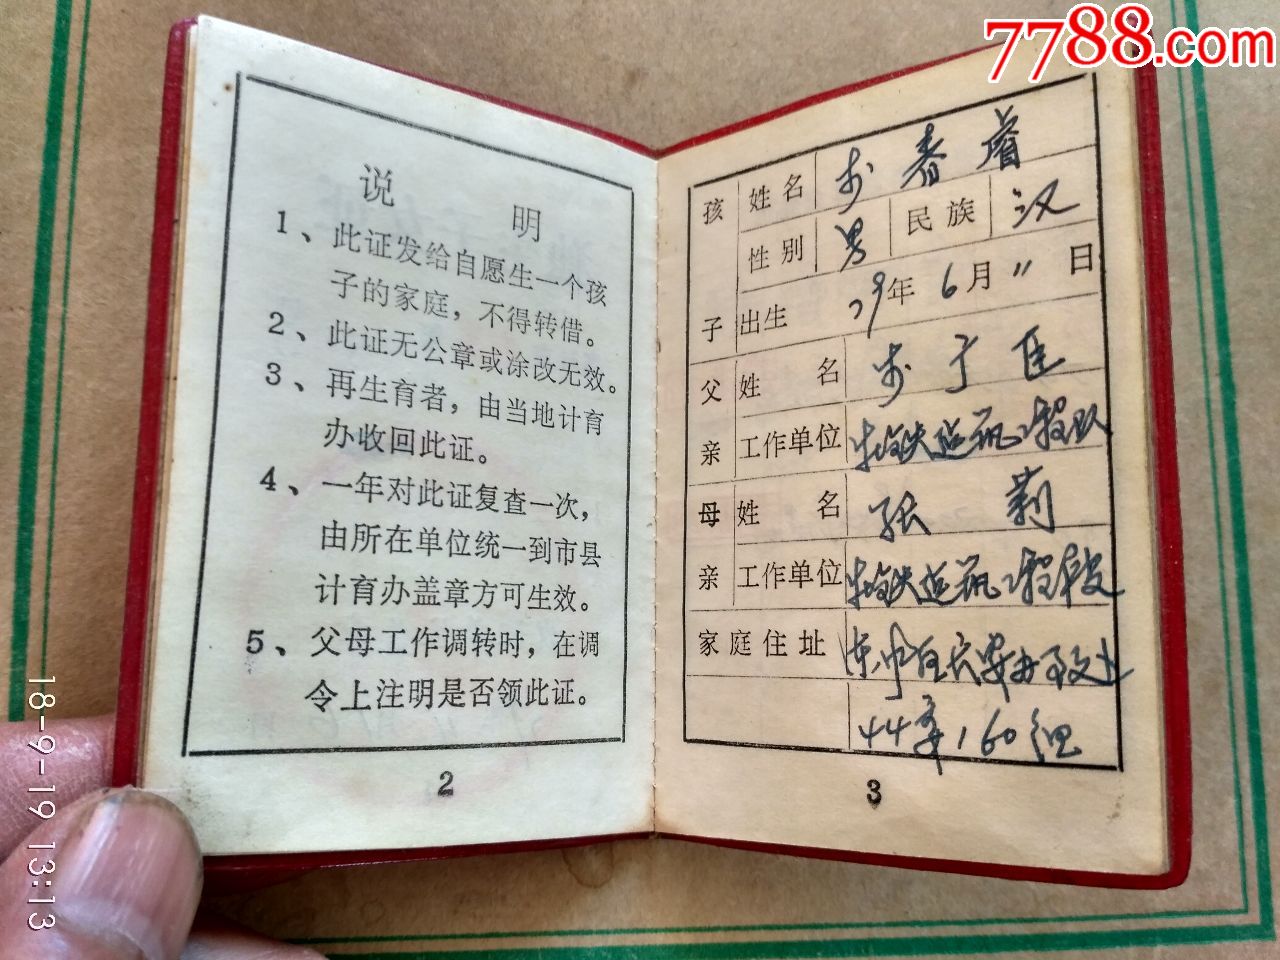 7788.com
说 明
1、此证发给自愿生一个孩
子的家庭，不得转借。
2、此证无公章或涂改无效。
3、再生育者，由当地计育
办收回此证。
4、一年对此证复查一次，
由所在单位统一到市县
计育办盖章方可生效。
5、父母工作调转时，在调
令上注明是否领此证。
2
孩子 姓名 春睿
性别 男 民族 汉
出生 79年6月11日
父亲 姓名
工作单位
母亲 姓名 张莉
工作单位
家庭住址
44 160组
3
18-9-19 13:13